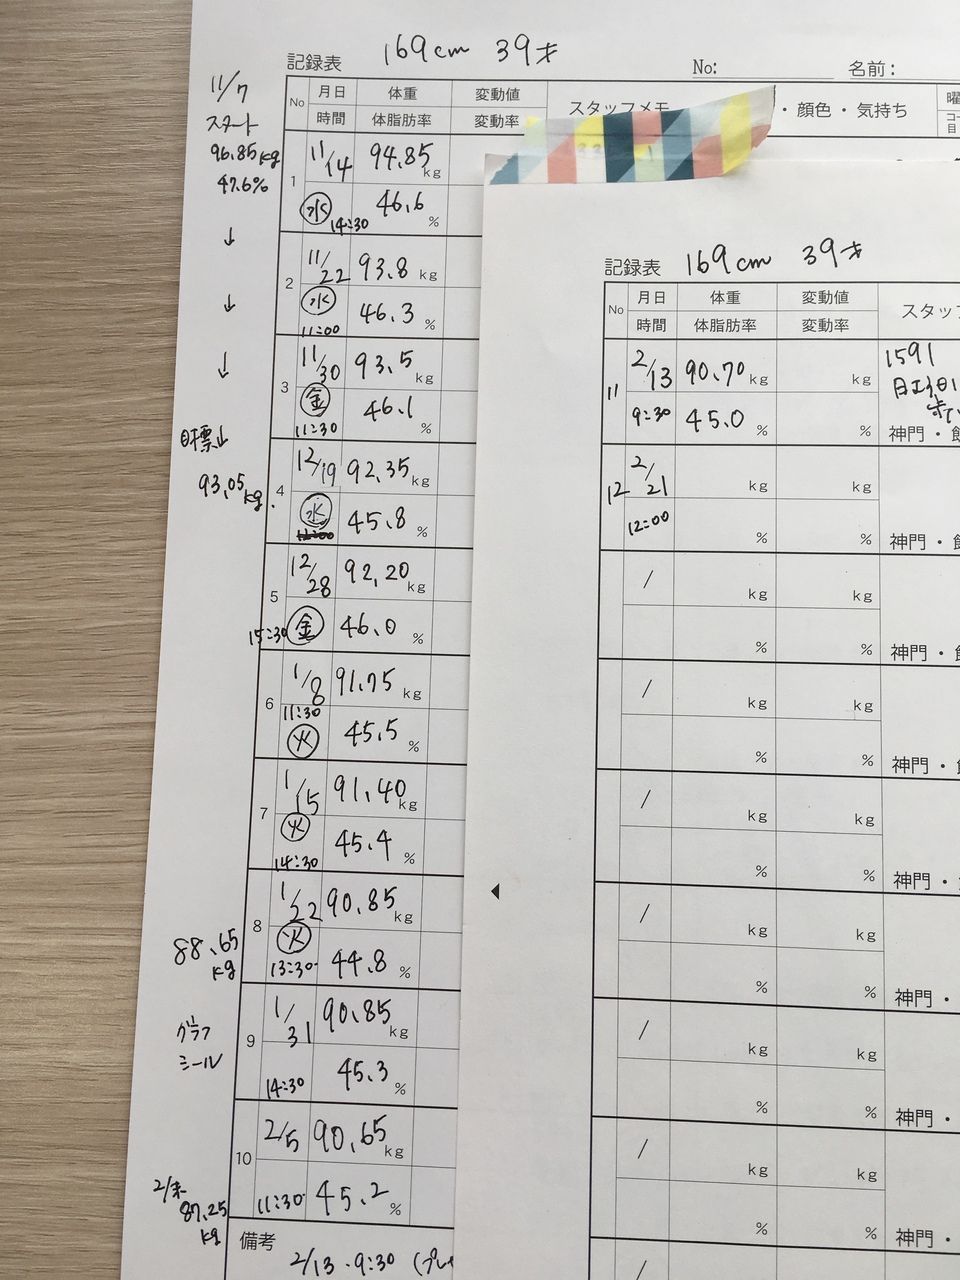 169cm 39才
記録表
No:
名前:
No
月日
体重
変動値
スタッフメモ
・顔色・気持ち
時間
体脂肪率
変動率
11/7
スタート
96.85kg
47.6%
↓
↓
↓
目標↓
93.05kg
1
11/14
94.85kg
水
14:30
46.6%
2
11/22
93.8kg
水
11:00
46.3%
3
11/30
93.5kg
金
11:30
46.1%
4
12/19
92.35kg
水
45.8%
5
12/28
92.20kg
15:30
金
46.0%
6
1/8
91.75kg
11:30
火
45.5%
7
1/15
91.40kg
火
14:30
45.4%
8
1/22
90.85kg
火
13:30
44.8%
88.65kg
グラフ
シール
9
1/31
90.85kg
14:30
45.3%
10
2/5
90.65kg
11:30
45.2%
2/末
87.25kg
備考
2/13・9:30 (プレ
記録表
169cm 39才
No
月日
体重
変動値
スタッフ
時間
体脂肪率
変動率
11
2/13
90.70kg
kg
1591
9:30
45.0%
%
神門・
12
2/21
kg
kg
12:00
%
%
神門・
/
kg
kg
%
%
神門・
/
kg
kg
%
%
神門・
/
kg
kg
%
%
神門・
/
kg
kg
%
%
神門・
/
kg
kg
%
%
神門・
/
kg
kg
%
%
神門・
/
kg
kg